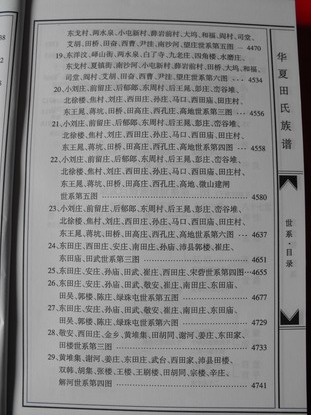 东戈村、两水泉、小屯新村、薛岩前村、田桥、大坞、和福、阎村、司堂、
艾胡、田桥、田奋、西曹、尹洼、南沙河、望庄世系第五图 4470
19、东洋汶、峄山街、两水泉、白了寺、九老庄、四角楼、水磨庄、
东戈村、夏镇街、南沙河、小屯新村、薛岩前村、田桥、大坞、和福、
司堂、阎村、艾胡、田奋、西曹、尹洼、望庄世系第六图 4534
20、小刘庄、前留庄、后郁郎、东周村、后王晁、彭庄、峦谷堆、
北徐楼、焦村、刘庄、西田庄、孙庄、马口、西田庙、田庄村、
东王晁、蒋坑、田桥、田高庄、西孔庄、高地世系第三图 4556
21、小刘庄、前留庄、后郁郎、东周村、后王晁、彭庄、峦谷堆、
北徐楼、焦村、刘庄、西田庄、孙庄、马口、西田庙、田庄村、
东王晁、蒋坑、田桥、田高庄、西孔庄、高地世系第四图 4558
22、小刘庄、前留庄、后郁郎、东周村、后王晁、彭庄、峦谷堆、
北徐楼、焦村、刘庄、西田庄、孙庄、马口、西田庙、田庄村、
东王晁、蒋坑、田桥、田高庄、西孔庄、高地、微山建闸
世系第五图 4580
23、小刘庄、前留庄、后郁郎、东周村、后王晁、彭庄、峦谷堆、
北徐楼、焦村、刘庄、西田庄、孙庄、马口、西田庙、田庄村、
东王晁、蒋坑、田桥、田高庄、西孔庄、高地世系第六图 4637
24、东田庄、西田庄、安庄、南田庄、孙庙、沛县郭楼、崔庄、
东田庙、田武世系第三图 4651
25、东田庄、安庄、孙庙、田武、崔庄、西田庄、宋砦世系第四图 4655
26、东田庄、西田庄、安庄、孙庙、敬安、崔庄、东田庙、田武、
田吴、郭楼、陈庄、绿珠屯世系第五图 4677
27、东田庄、西田庄、安庄、孙庙、敬安、崔庄、东田庙、田武、
田吴、郭楼、陈庄、绿珠屯世系第六图 4729
28、敬安、西田庄、金乡、黄堆集、田胡同、谢河、姜庄、东田家、
田楼世系第三图 4733
29、黄堆集、谢河、姜庄、东田庄、武台、西田家、沛县田楼、
双韩、胡集、张楼、王楼、王剧楼、田胡同、宗楼、辛庄、
解河世系第四图 4741
华夏田氏族谱
世系·目录